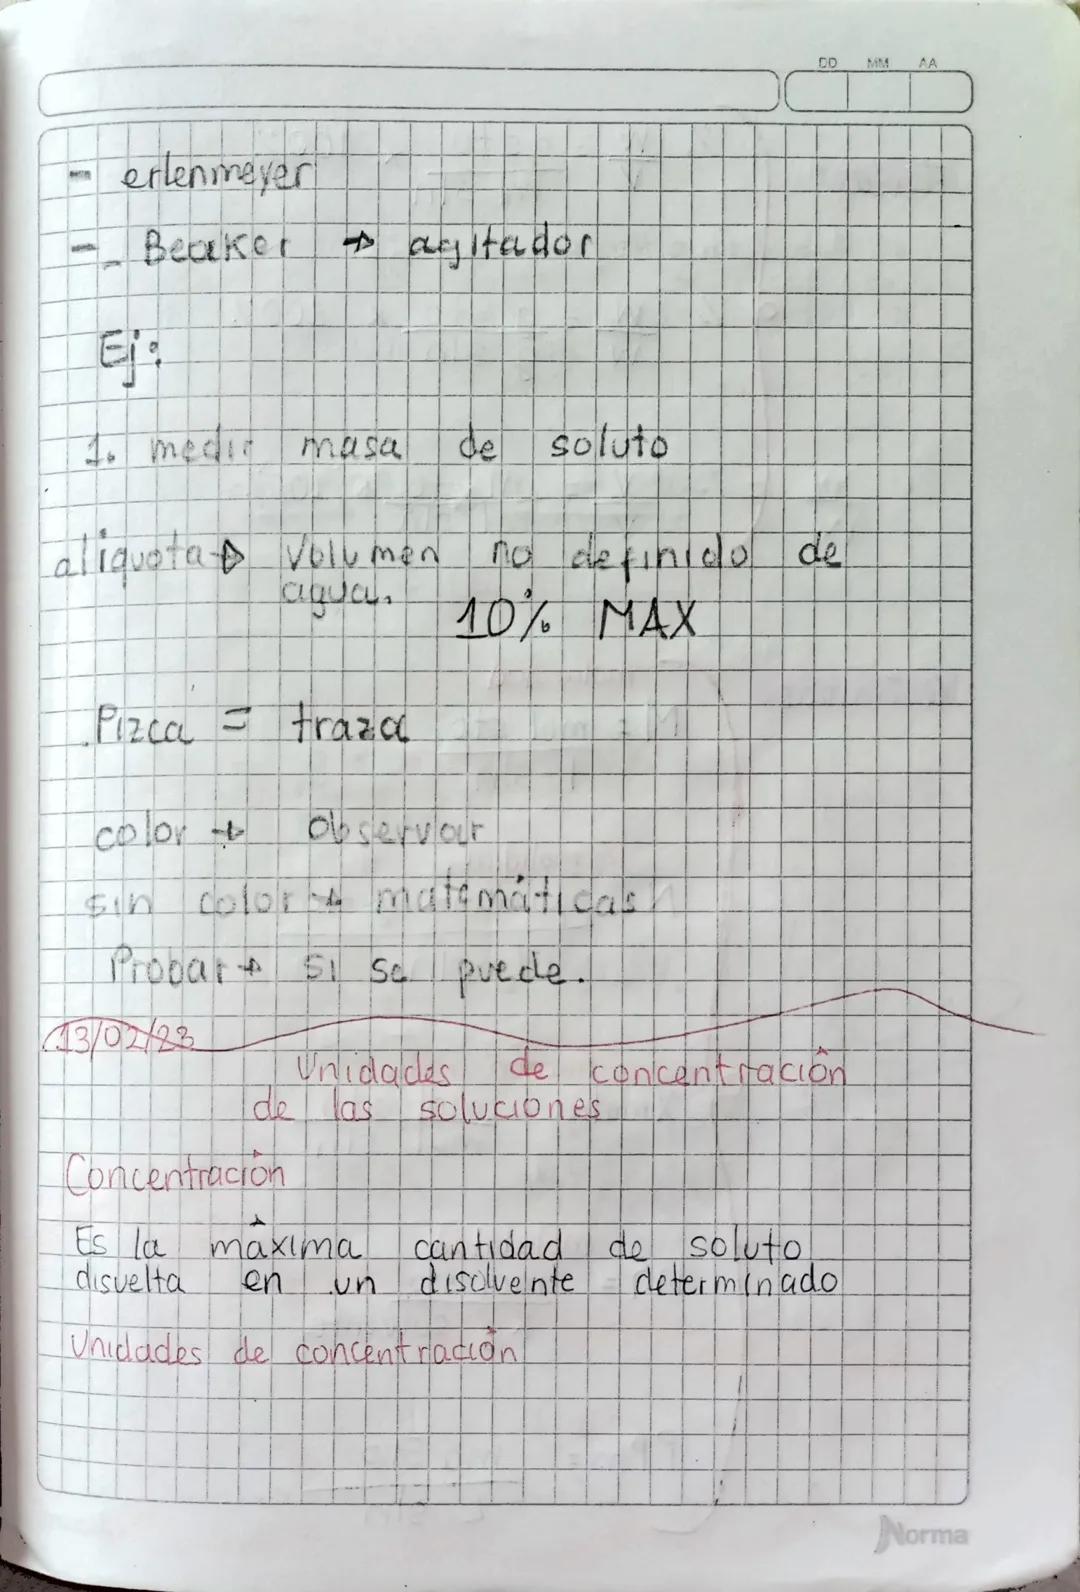 DD MM AA
- erlenmeyer
- Beaker → agitador
Ej:
1. medir masa de soluto
aliquota → Volumen no definido de
agua.
10% MAX
Pizca = traza
color → Observar
sin color → matemáticas
Probar → si se puede.
13/02/23
Unidades de concentración
de las soluciones
Concentración
Es la máxima cantidad de soluto
disuelta en un disolvente determinado
Unidades de concentración
Norma